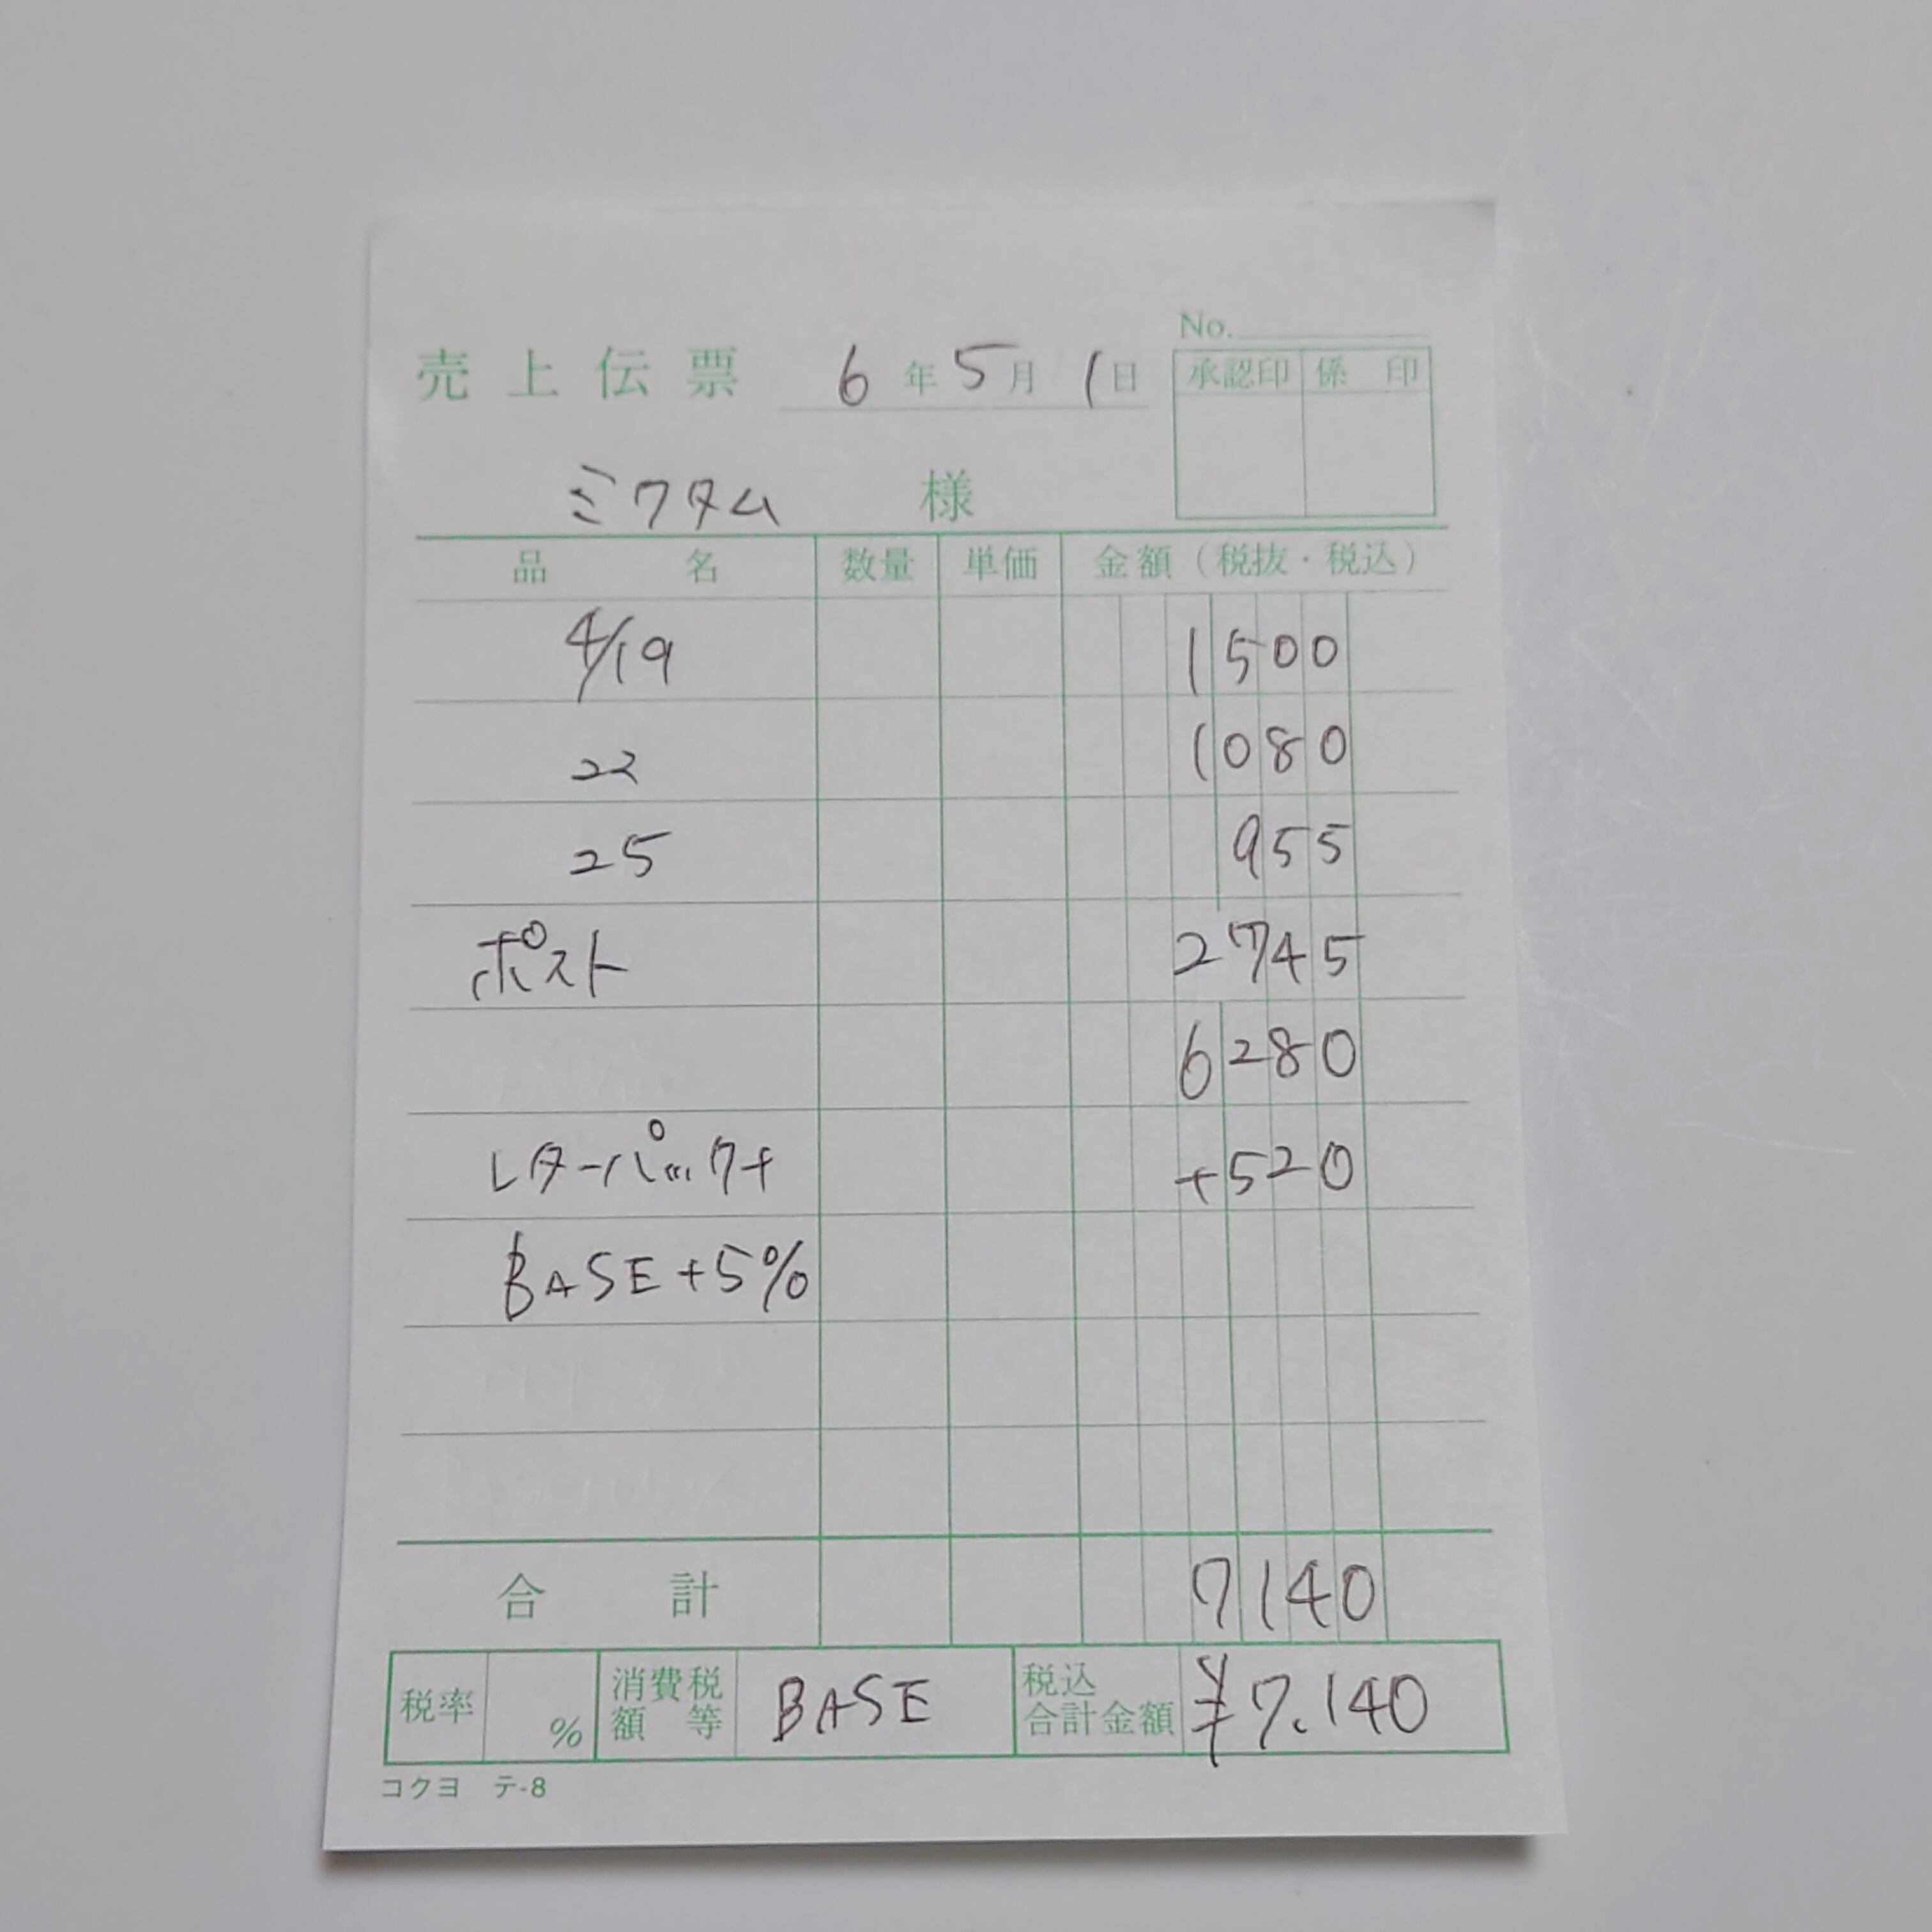 No.
売上伝票 6年5月1日
承認印 係印
ミワタム 様
品名 数量 単価 金額(税抜・税込)
4/19 1500
22 1080
25 955
ポスト 2745
6280
レターパック+ +520
BASE+5%
合計 7140
税率 % 消費税額等 BASE 税込合計金額 ¥7.140
コクヨ テ-8